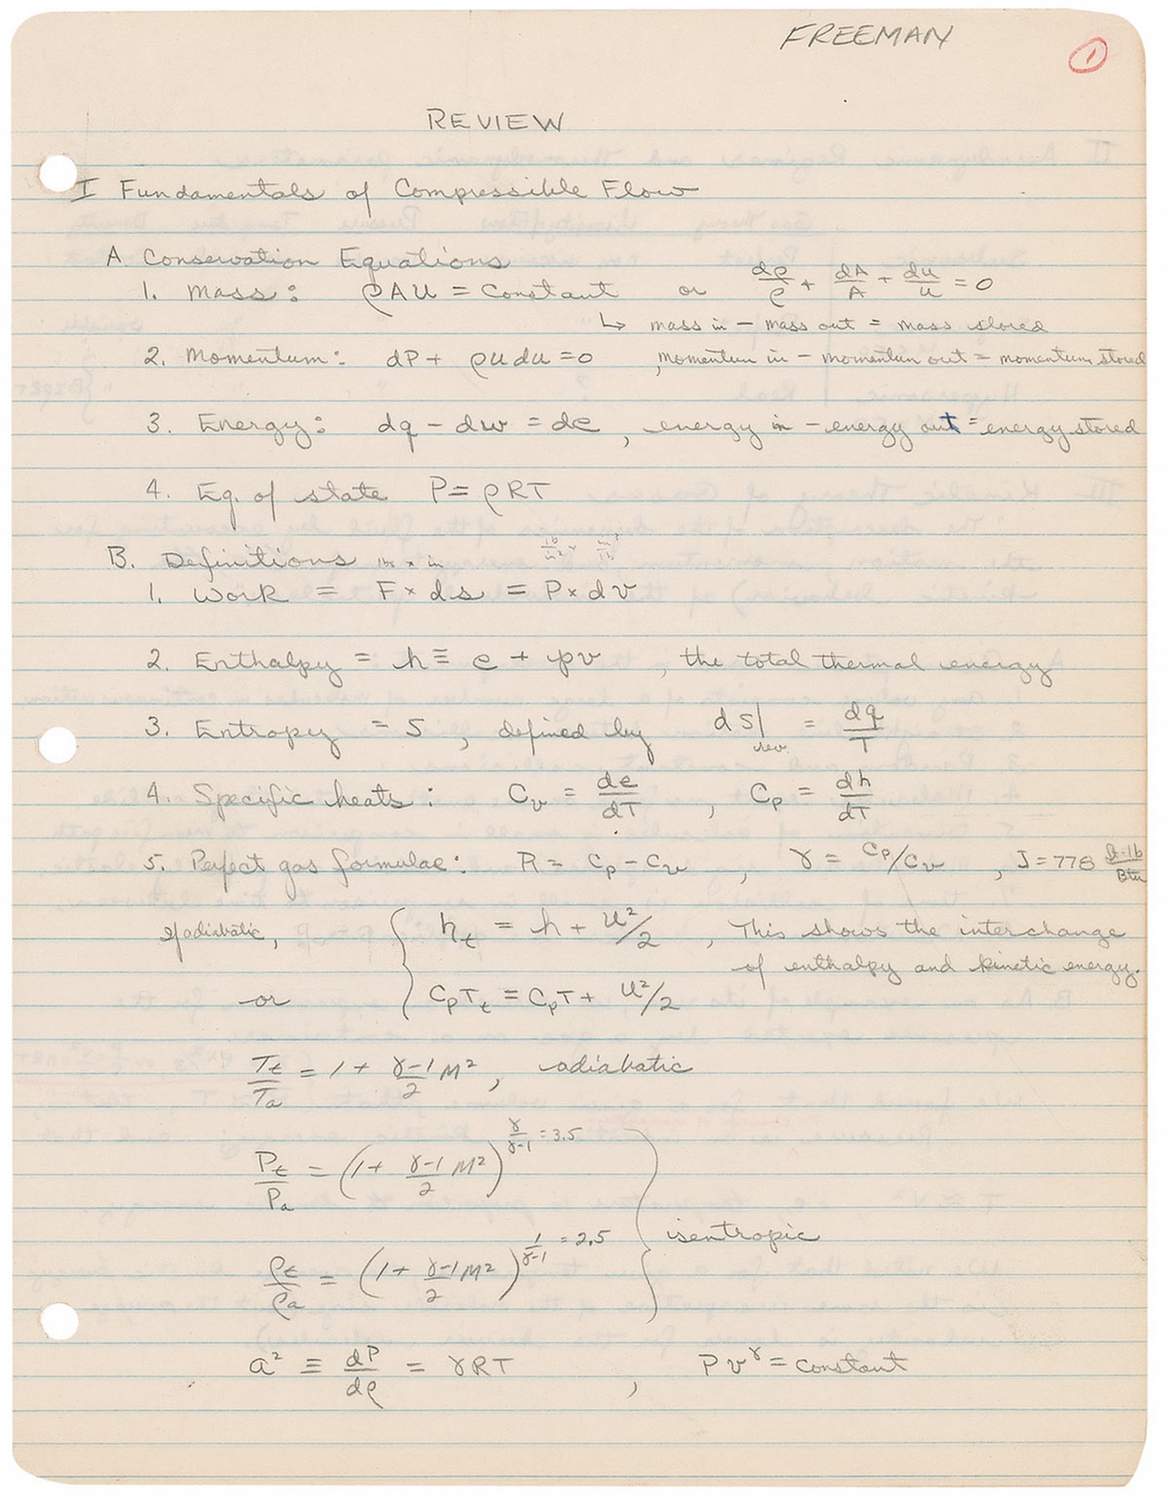 FREEMAN
1
REVIEW
I Fundamentals of Compressible Flow
A. Conservation Equations
1. Mass: ρAU = Constant or dρ/ρ + dA/A + du/u = 0
↳ mass in - mass out = mass stored
2. Momentum: dP + ρudu = 0 , momentum in - momentum out = momentum stored
3. Energy: dq - dw = de , energy in - energy out = energy stored
4. Eq. of state P = ρRT
B. Definitions lbs × in lb/in²
1. Work = F × ds = P × dv
2. Enthalpy = h ≡ e + pv , the total thermal energy
3. Entropy = S , defined by dS|rev = dq/T
4. Specific heats: Cv = de/dT , Cp = dh/dT
5. Perfect gas formulae: R = Cp - Cv , γ = Cp/Cv , J = 778 ft-lb/Btu
if adiabatic, { ht = h + U²/2 , This shows the interchange
of enthalpy and kinetic energy.
or CpTt = CpT + U²/2
Tt/Ta = 1 + γ-1/2 M² , adiabatic
Pt/Pa = (1 + γ-1/2 M²)^γ/γ-1 = 3.5
ρt/ρa = (1 + γ-1/2 M²)^1/γ-1 = 2.5 } isentropic
a² ≡ dP/dρ = γRT , Pv^γ = constant